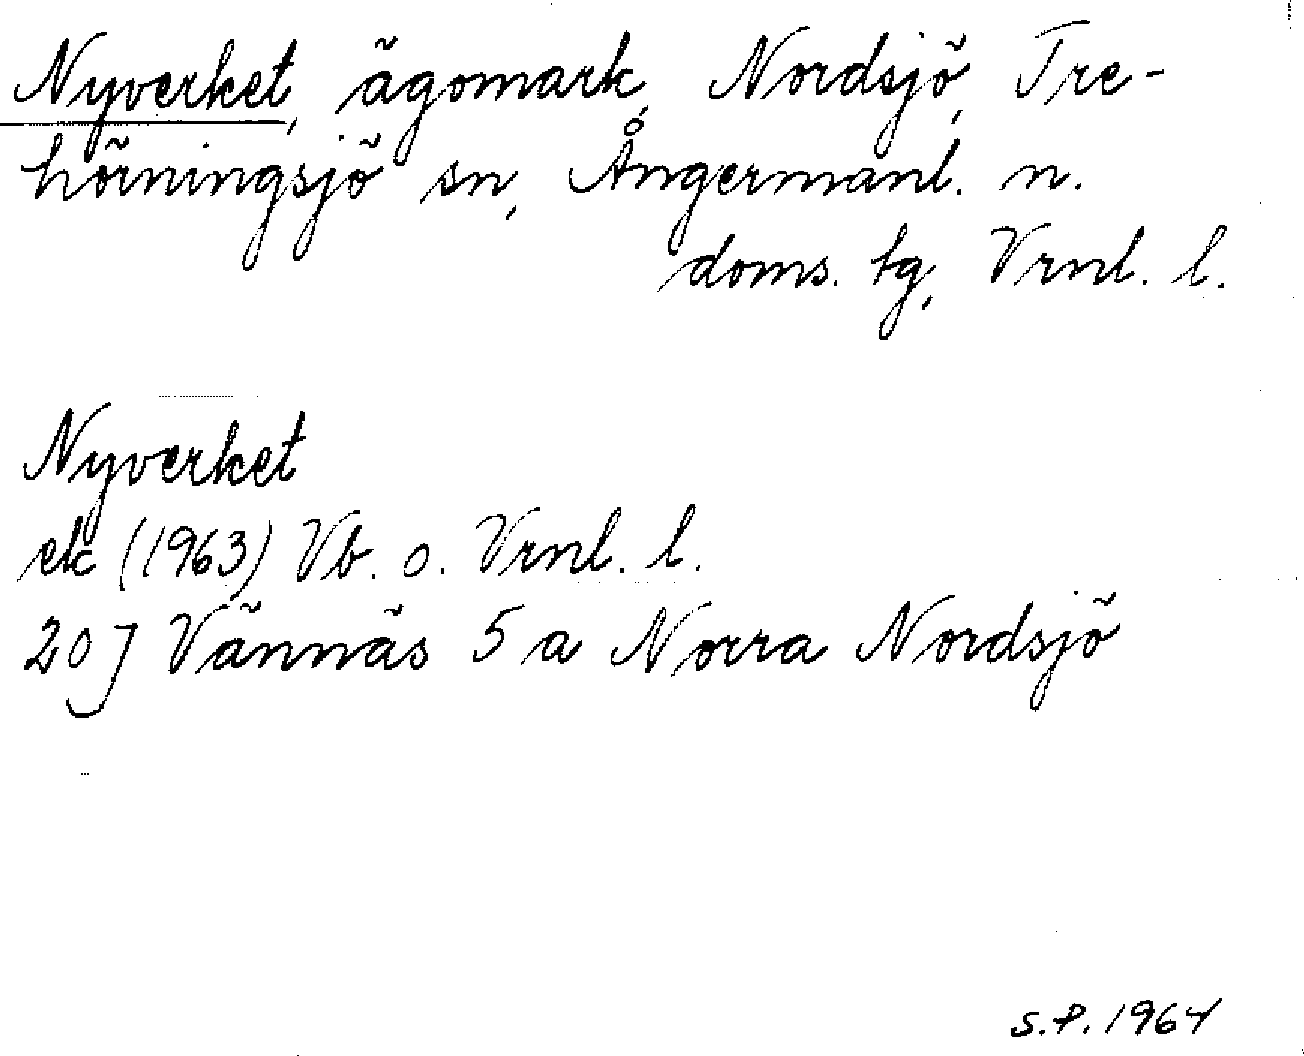 Nyverket, ägomark, Nordsjö, Tre-
hörningsjö sn, Ångermanl. n.
doms. tg, Vrnl. l.
Nyverket
ek (1963) Vb. o. Vrnl. l.
20J Vännäs 5 a Norra Nordsjö
S.P. 1964